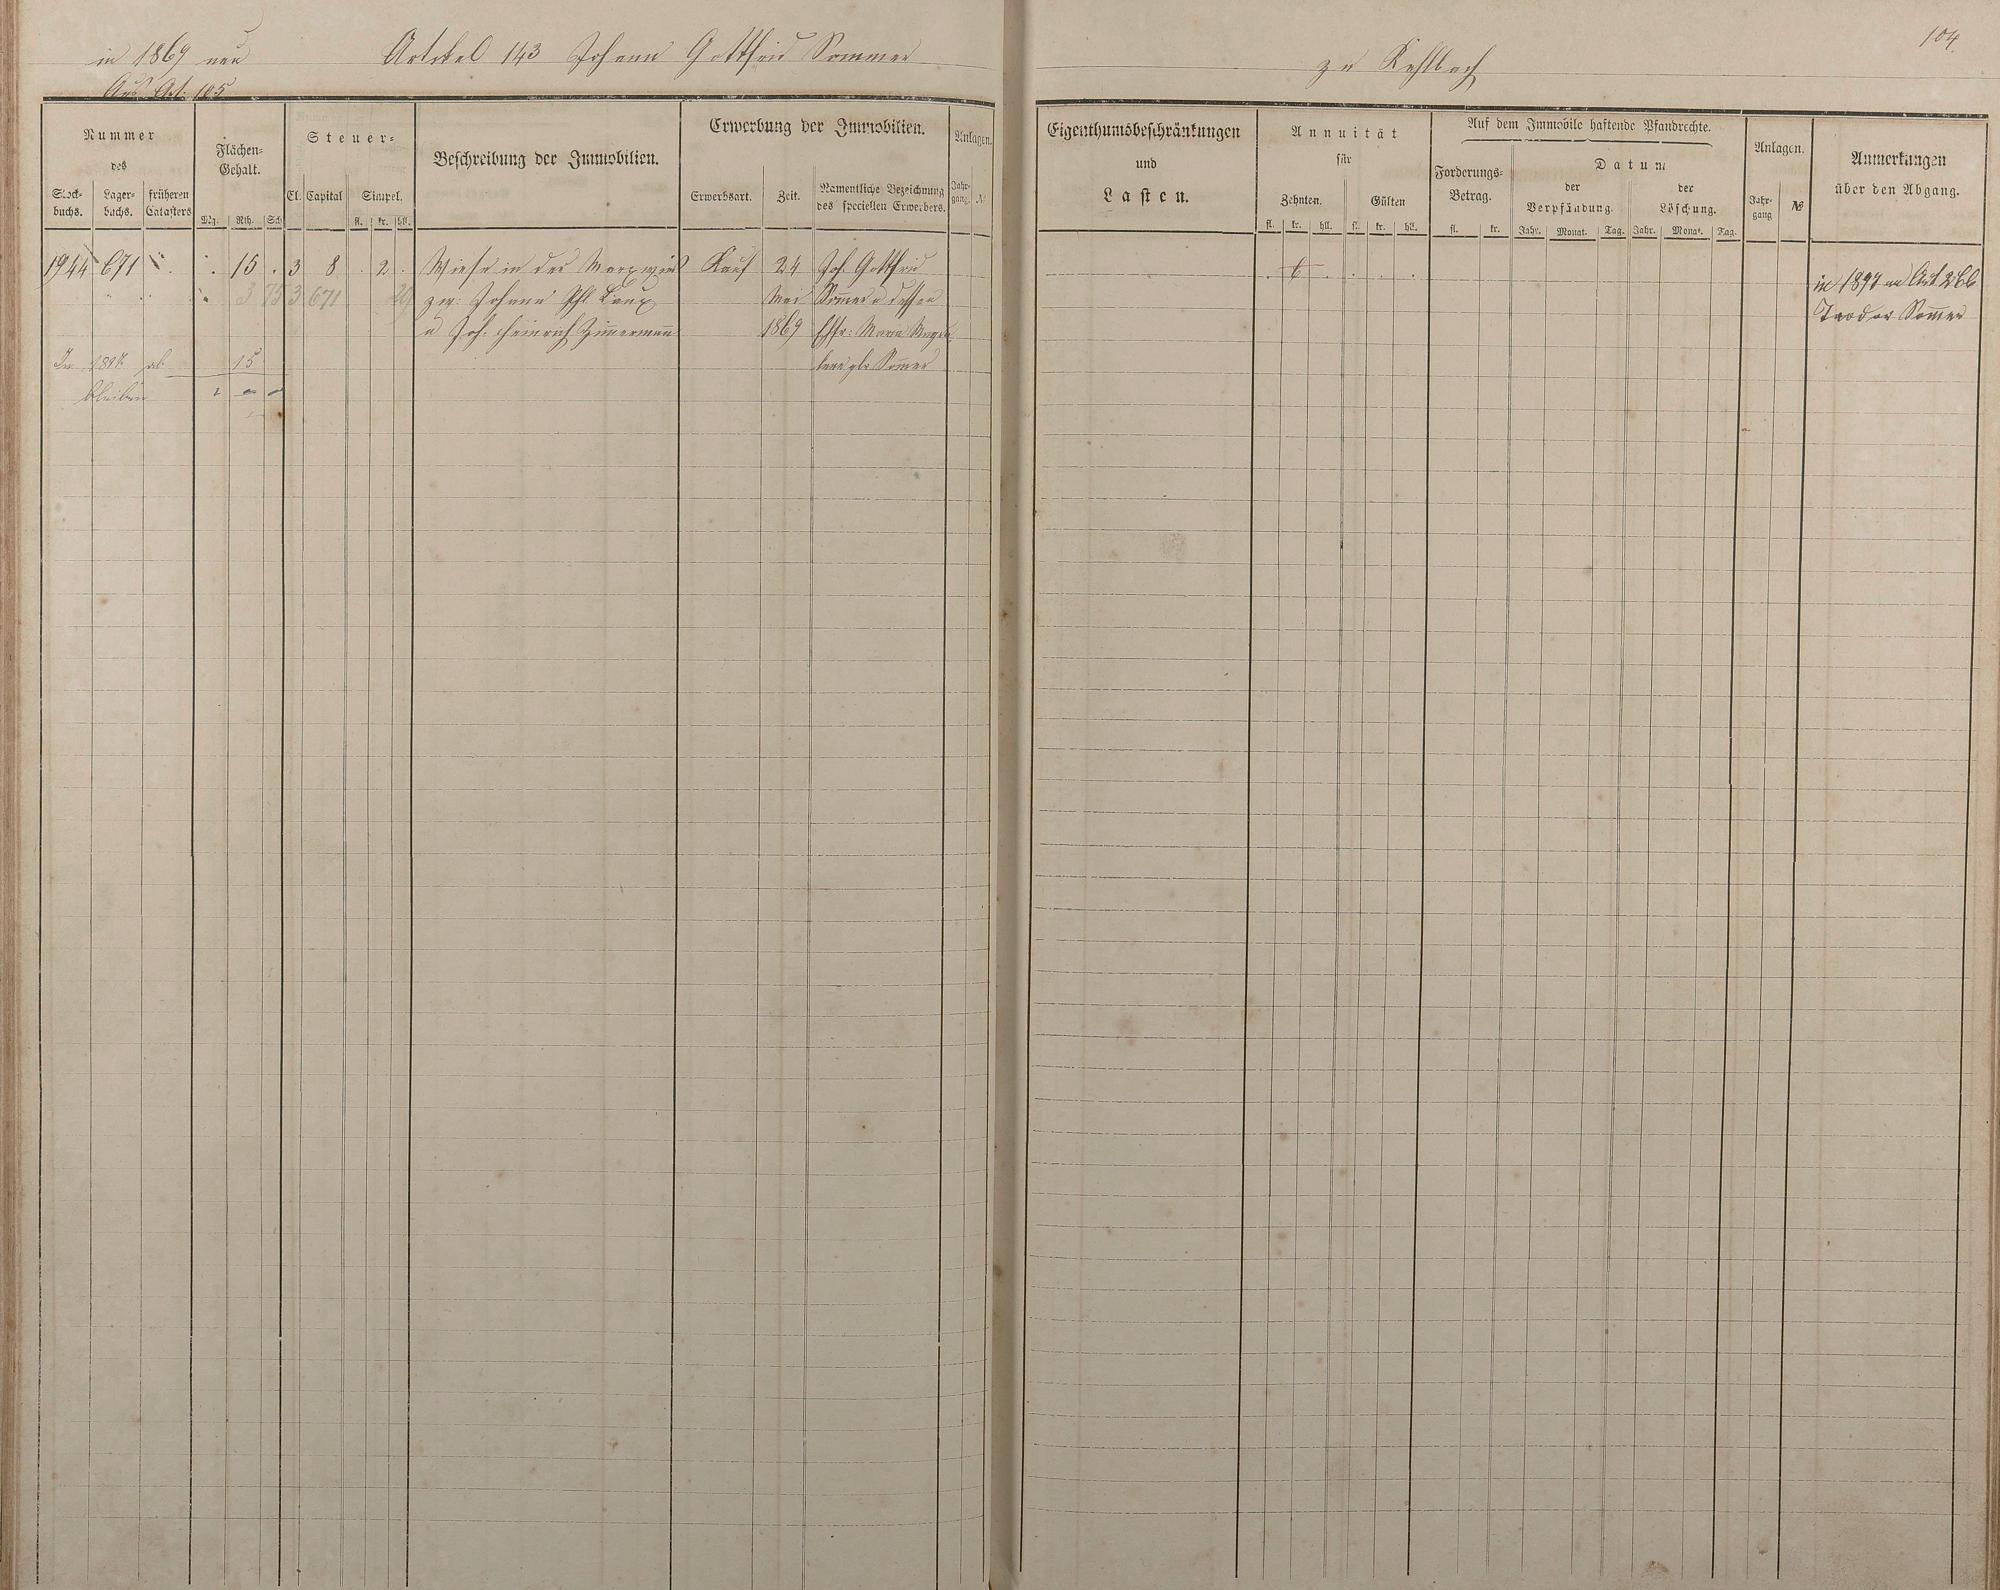 in 1869 neu
Artikel 143 Johann Gottfried Sommer
zu Kehlbach
104
Aus Art: 105
Nummer
des
Stock-
buchs.
Lager-
buchs.
früheren
Catasters
Flächen-
Gehalt.
Mg. Rth. Sch.
Steuer-
Cl. Capital Simpel.
fl. kr. hll.
Beschreibung der Immobilien.
Erwerbung der Immobilien.
Erwerbsart. Zeit.
Namentliche Bezeichnung
des speciellen Erwerbers.
Anlagen.
Jahr-
gang. №
Eigenthumsbeschränkungen
und
Lasten.
Annuität
für
Zehnten. Gülten
fl. kr. hll. fl. kr. hll.
Auf dem Immobile haftende Pfandrechte.
Forderungs-
Betrag.
fl. kr.
Datum
der
Verpfändung.
Jahr. Monat. Tag.
der
Löschung.
Jahr. Monat. Tag.
Anlagen.
Jahr-
gang №
Anmerkungen
über den Abgang.
1944 671 15 3 8 2 Wiese in der Kauf 24 Joh. Gottfried 6 in 1897 an Art 266
3 75 3 671 29 zw: Johann Phl Laux Mai Sommer u dessen Teodor Sommer
u Joh. Heinrich Zimmermann 1869 Ehfr: Maria Magda
In ab 15 lena gb Sommer
bleiben